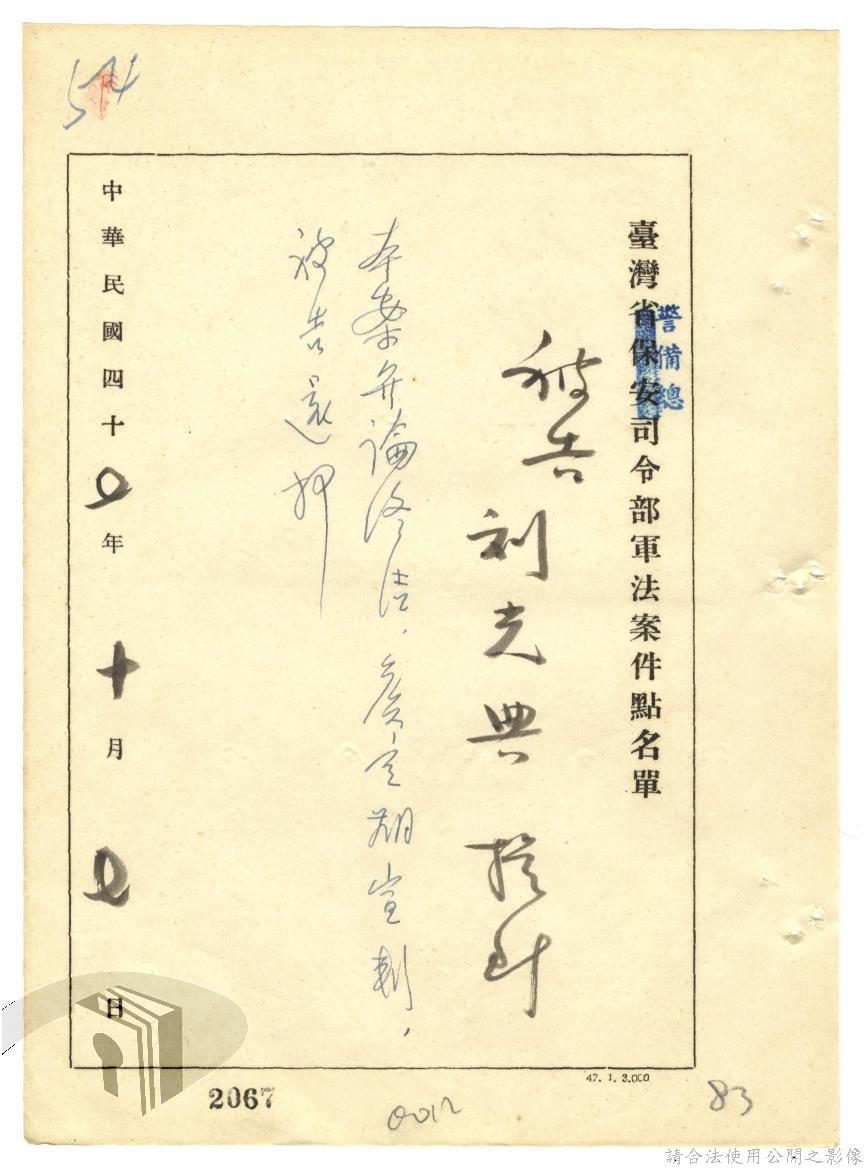 臺灣省保安司令部軍法案件點名單
警備總
被告
刘光典 提到
本案弁論終结，候定期宣判，
被告還押
中華民國四十年十月日
54
2067
47. 1. 3.000
0012
83
請合法使用公開之影像